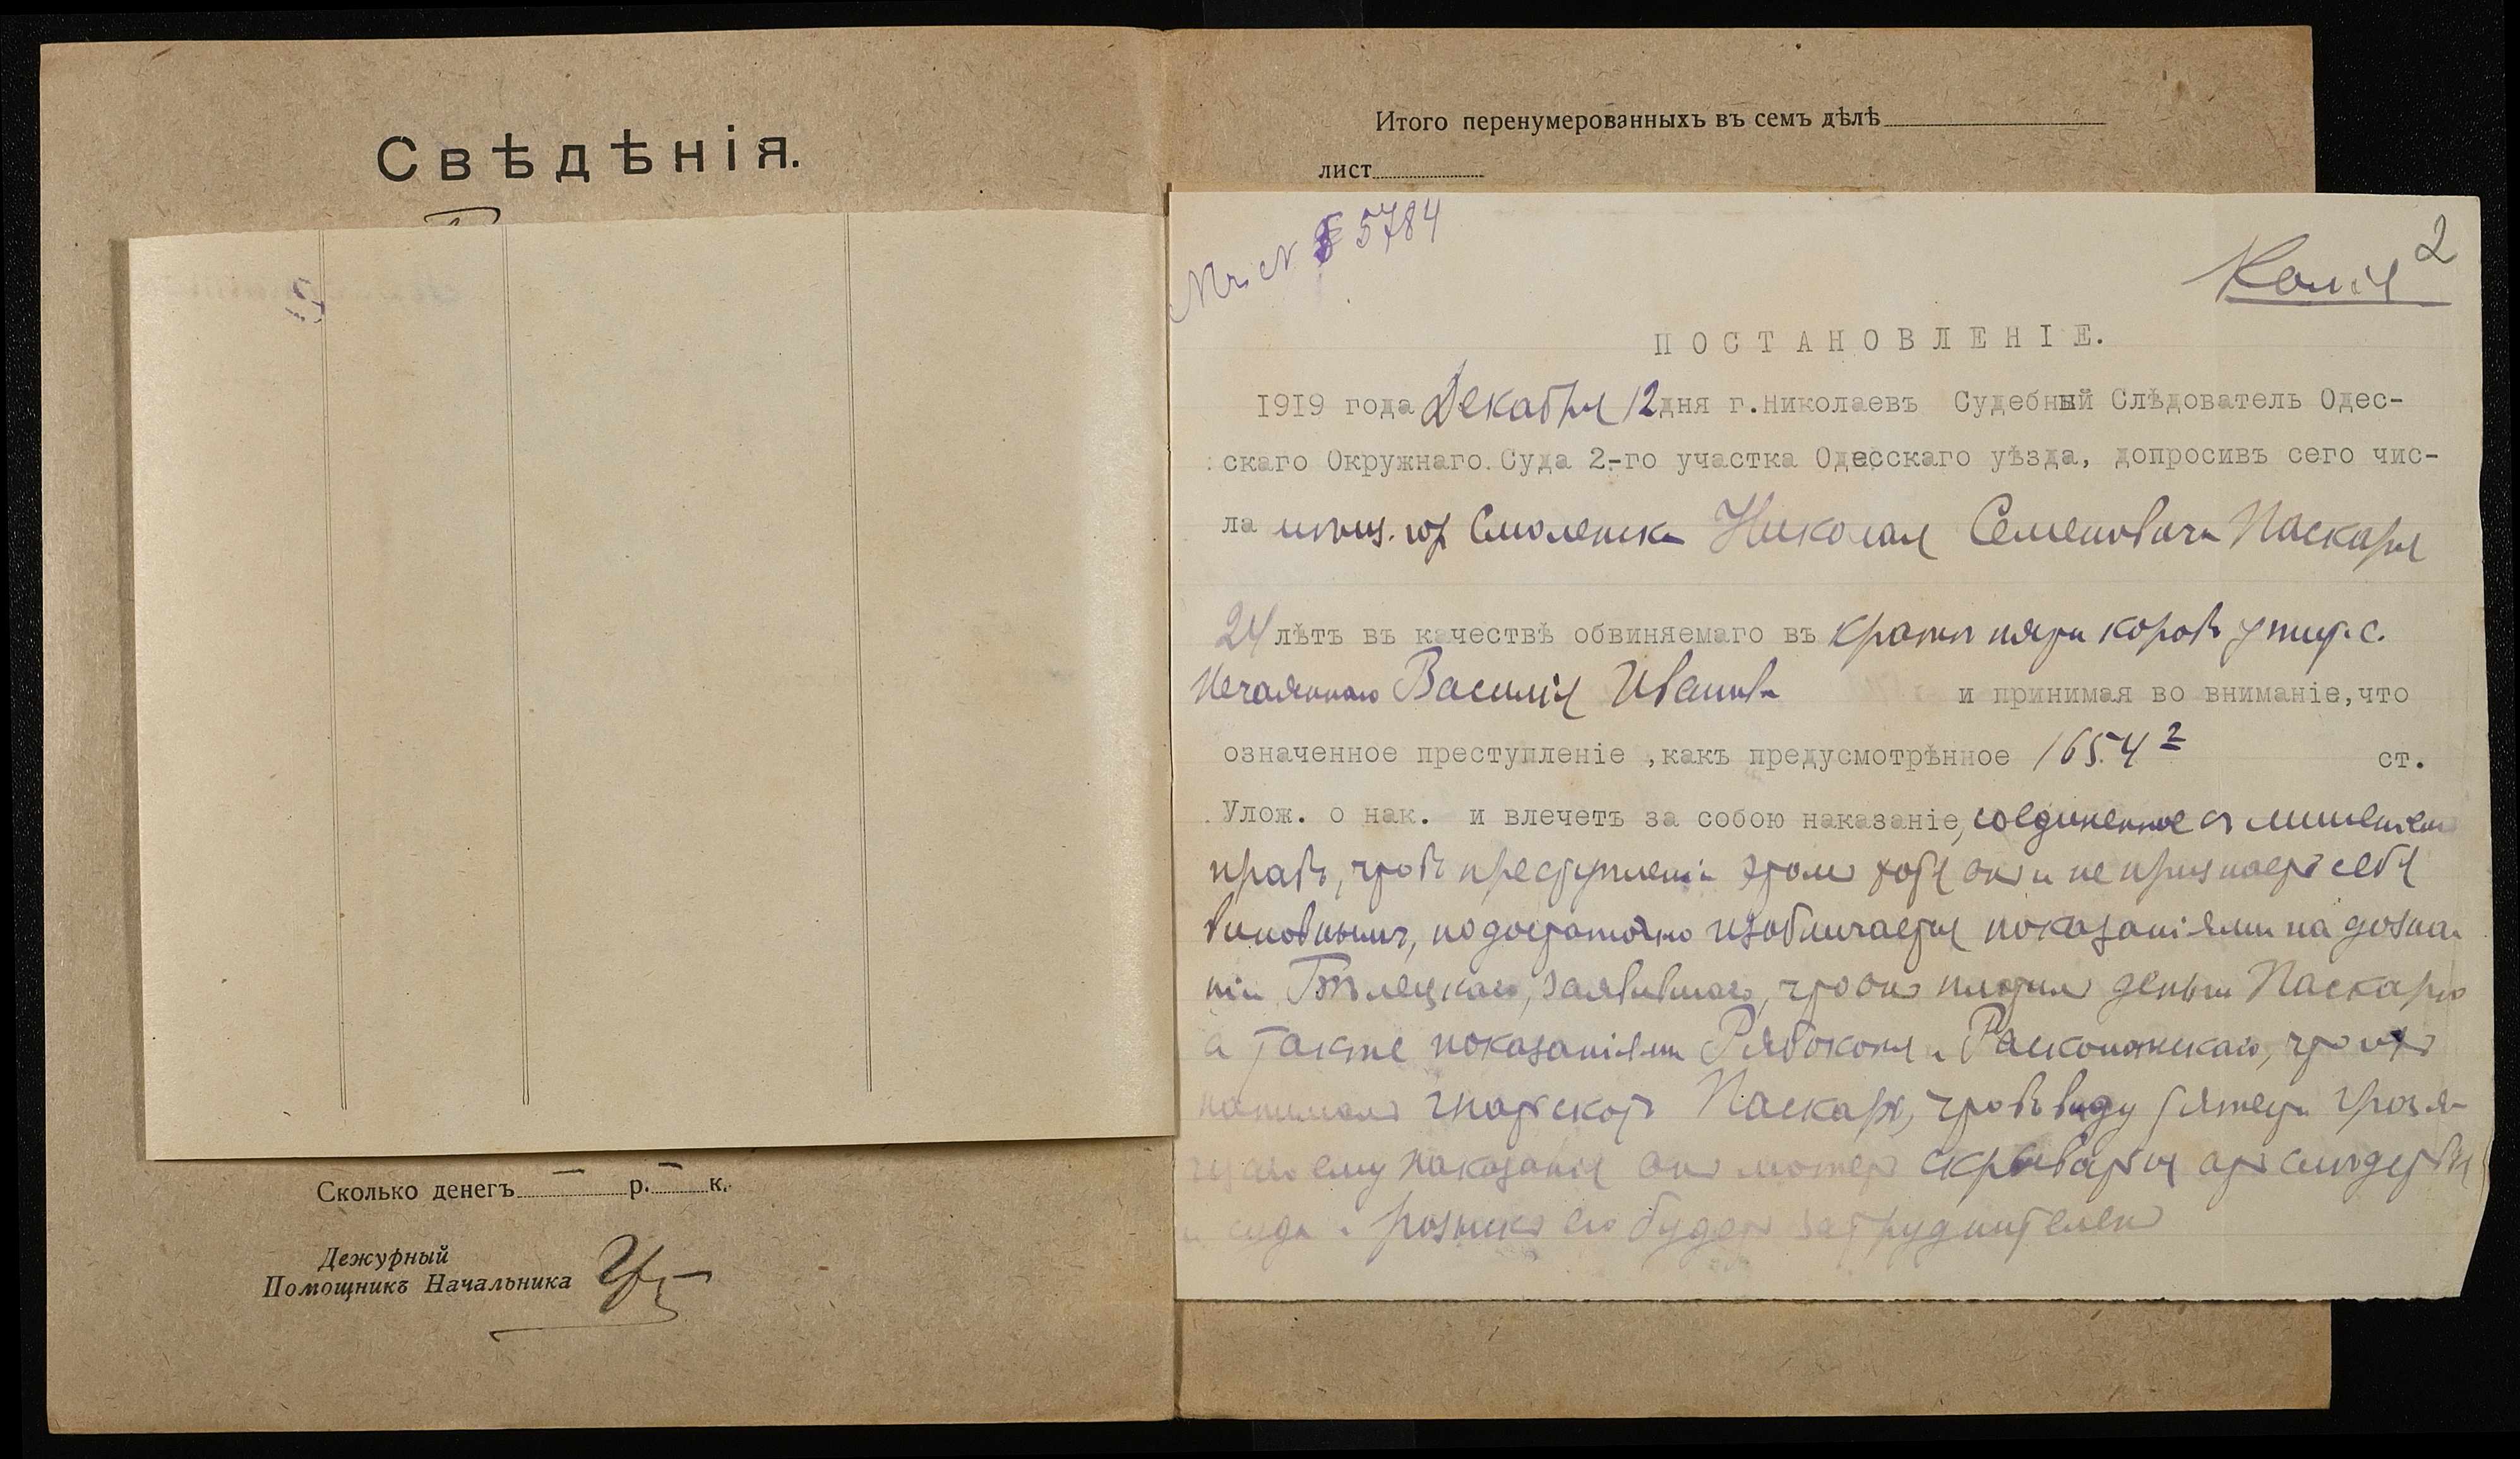 Свѣдѣнія.
Сколько денегъ — р. — к.
Дежурный
Помощникъ Начальника
Итого перенумерованныхъ въ семъ дѣлѣ
лист
5784
2
Копія
ПОСТАНОВЛЕНІЕ.
1919 года Декабря 12 дня г.Николаевъ Судебный Слѣдователь Одес-
скаго Окружнаго Суда 2-го участка Одесскаго уѣзда, допросивъ сего чис-
ла мѣщ. гор Смоленска Николая Семеновича Паскаря
24 лѣтъ въ качествѣ обвиняемаго въ кражѣ пяти коровъ у жит. с.
Нечаяннаго Василія Иванова и принимая во вниманіе, что
означенное преступленіе , какъ предусмотрѣнное 1654² ст.
Улож. о нак. и влечетъ за собою наказаніе, соединенное съ лишеніемъ
правъ, что въ преступленіи этомъ хотя онъ и не признаетъ себя
виновнымъ, но достаточно изобличается показаніями на дозна-
ніи Бѣлецкаго, заявившаго, что онъ платилъ деньги Паскарю
а также показаніями Рябоконя и что ихъ
нанималъ гнать скотъ Паскарь, что въ виду тяжести грозя-
щаго ему наказанія онъ можетъ скрываться отъ слѣдствія
и суда и розыскъ его будетъ затруднителенъ